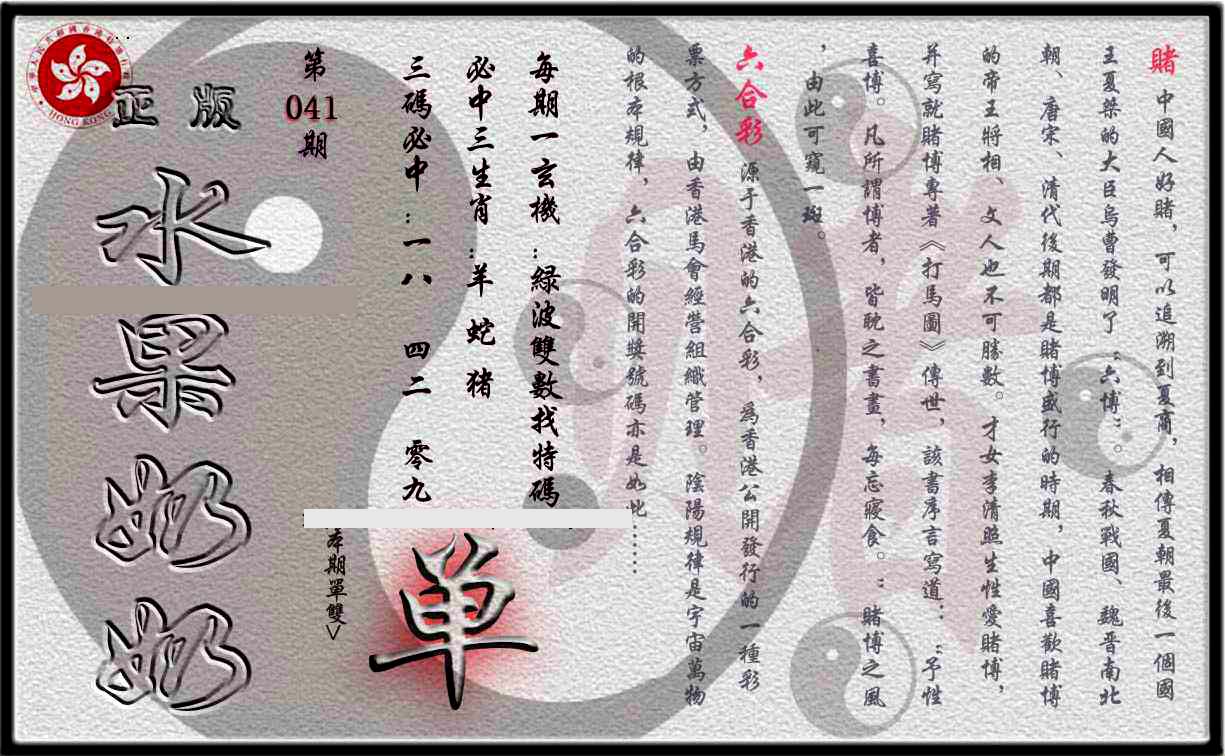 賭 中國人好賭，可以追溯到夏商，相傳夏朝最後一個國
王夏桀的大臣烏曹發明了“六博”。春秋戰國、魏晋南北
朝、唐宋、清代後期都是賭博盛行的時期，中國喜歡賭博
的帝王將相、文人也不可勝數。才女李清照生性愛賭博，
并寫就賭博專著《打馬圖》傳世，該書序言寫道：“予性
喜博。凡所謂博者，皆眈之書畫，每忘寢食。”賭博之風
，由此可窺一斑。
六合彩 源于香港的六合彩，為香港公開發行的一種彩
票方式，由香港馬會經營組織管理。陰陽規律是宇宙萬物
的根本規律，六合彩的開獎號碼亦是如此……
每期一玄機:綠波雙數找特碼
必中三生肖:羊 蛇 猪
三碼必中:一八 四二 零九
第
041
期
本期單雙>
单
正版
水果奶奶
HONG KONG